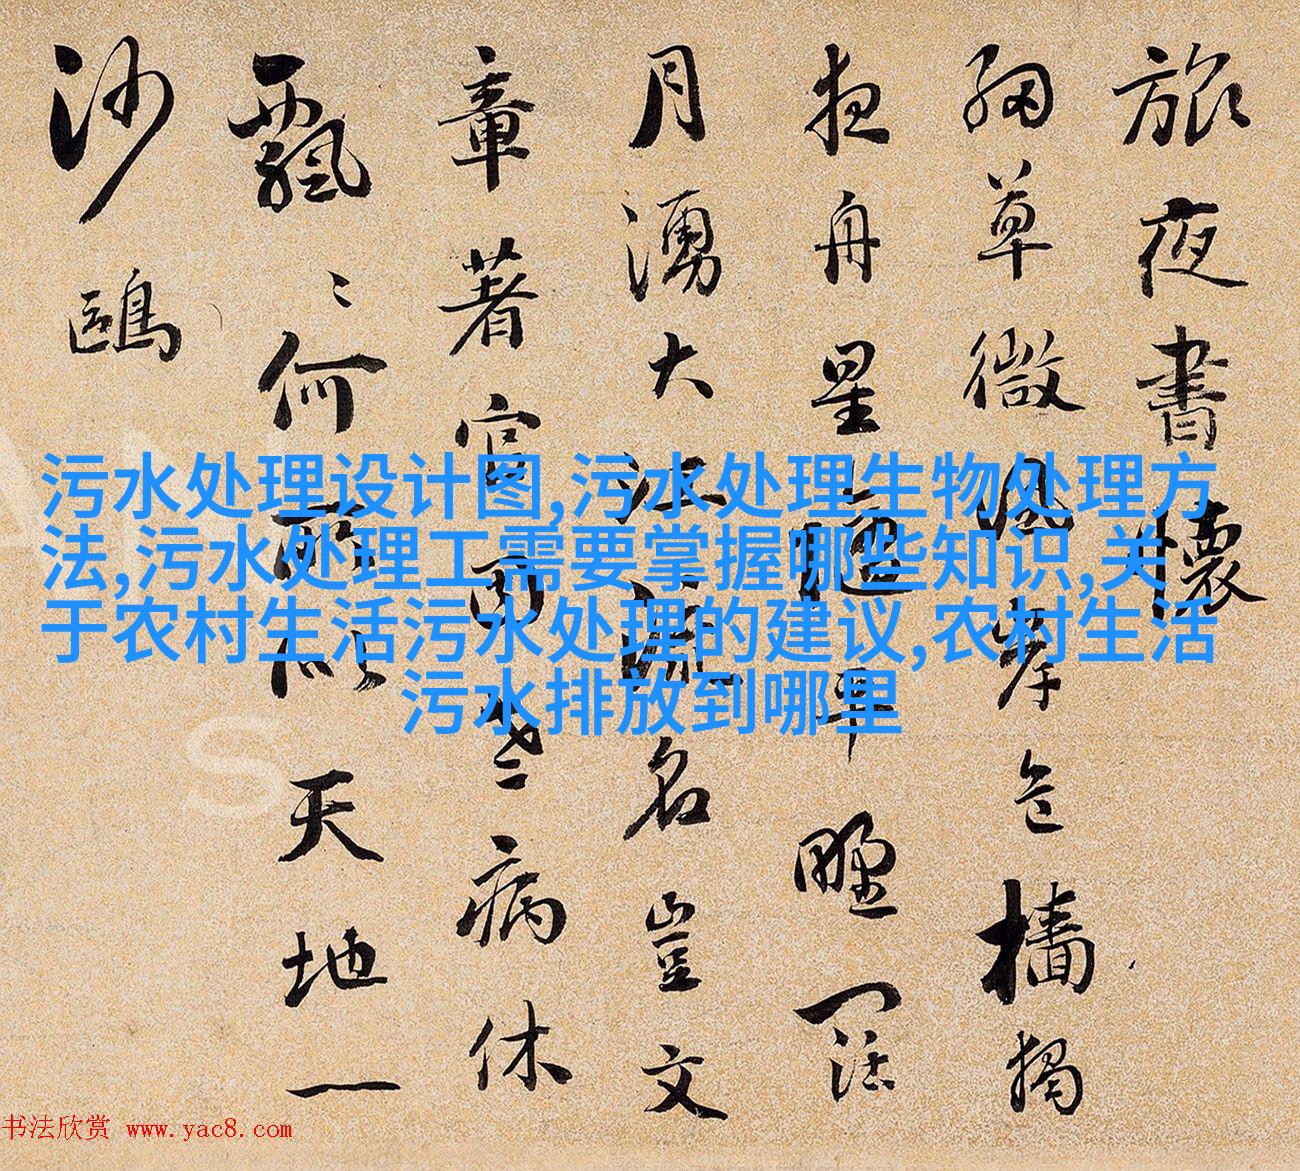 旅夜書懷
細草微風岸危檣獨
夜舟星平野闊
月湧大江流名豈文
章著官老病休
飄〻何所似天地一
沙鷗
污水处理设计图,污水处理生物处理方
法,污水处理工需要掌握哪些知识,关
于农村生活污水处理的建议,农村生活
污水排放到哪里
书法欣赏 www.yac8.com